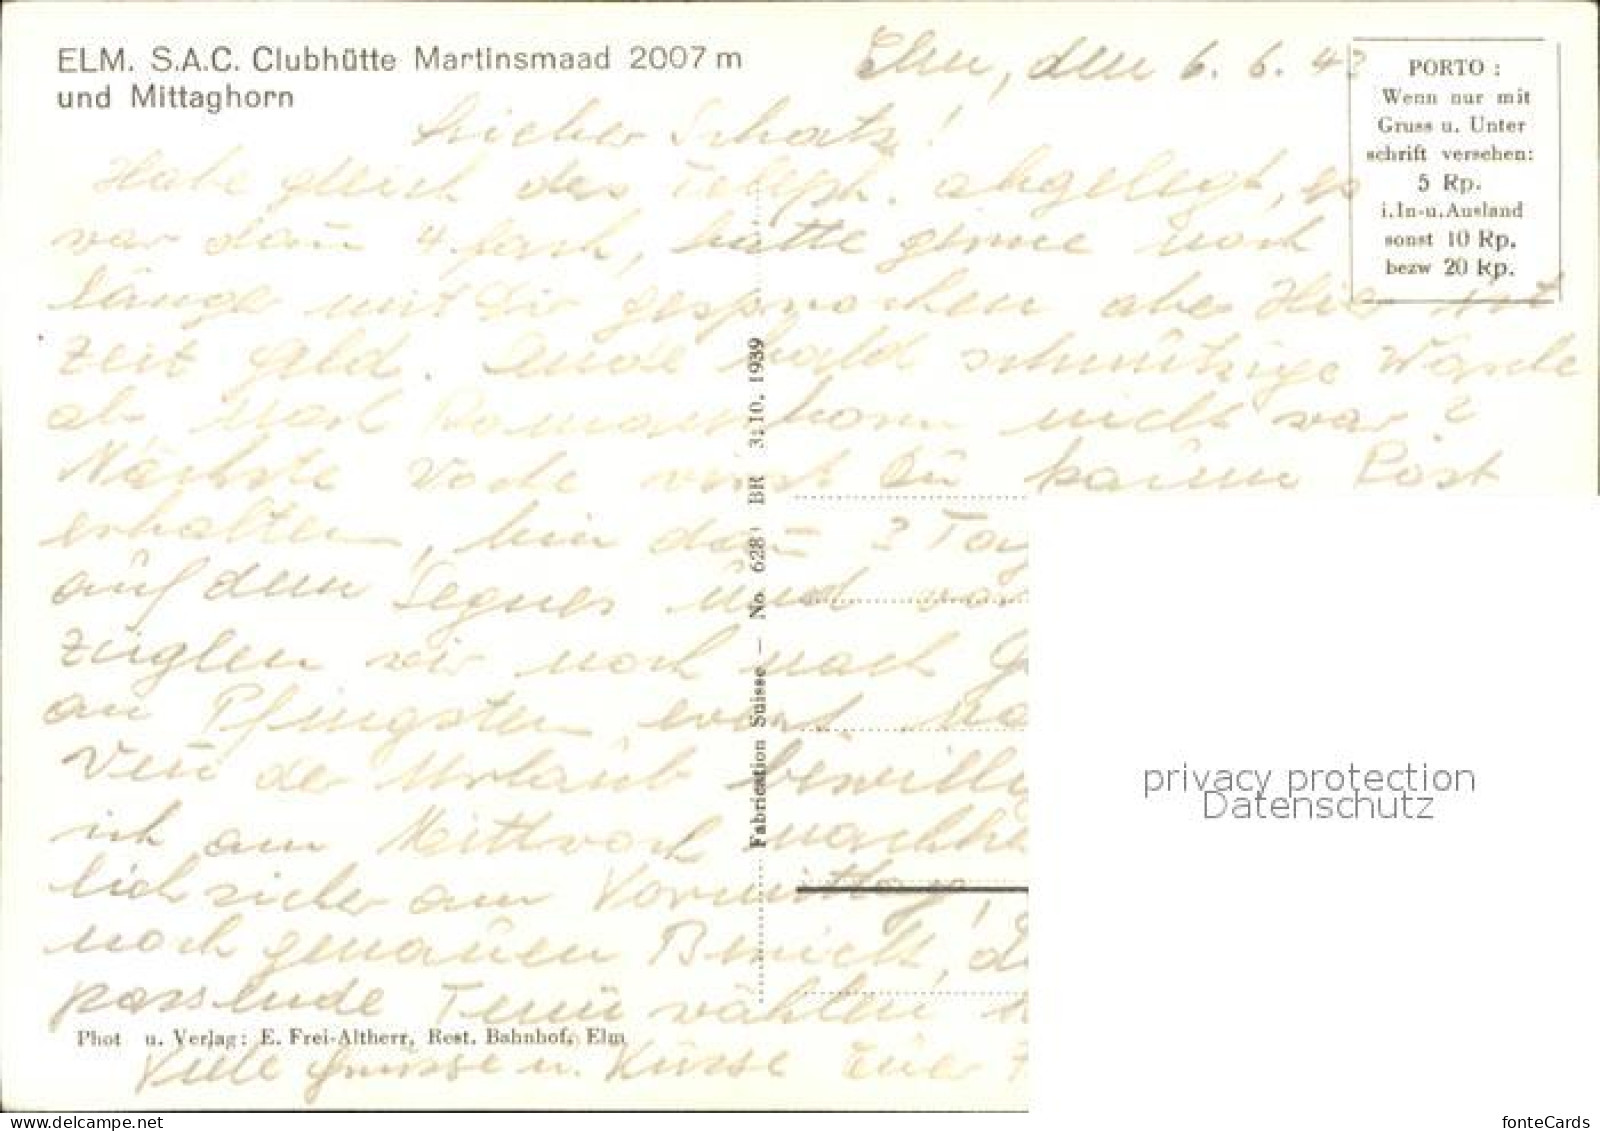 ELM. S.A.C. Clubhütte Martinsmaad 2007 m
und Mittaghorn
Elm, den 6. 6. 43
PORTO :
Wenn nur mit
Gruss u. Unter
schrift versehen:
5 Rp.
i.In-u.Ausland
sonst 10 Rp.
bezw 20 Rp.
Lieber Schatz!
Habe gleich das Teleph. abgelegt, es
war dann 4.fach, hätte gerne noch
lange mit Dir gesprochen aber Hier ist
Zeit Geld. bald schmutzige Wäsche
ab nach Romanshorn nicht war?
Nächste Woche wirst Du kaum Post
erhalten, bin dann 3 Tag
auf dem Segnes und
züglen wir noch nach
an Pfingsten event.
Wenn der Urlaub bewillig
ich am Mittwoch nachh
lich sicher am Vormittag,
noch genauen Bericht,
passende Tenü wählen
Viele Grüsse u. Küsse Euer
Fabrication Suisse — No. 628 BR 3.10.1939
Phot u. Verlag: E. Frei-Altherr, Rest. Bahnhof, Elm
privacy protection
Datenschutz
fonteCards